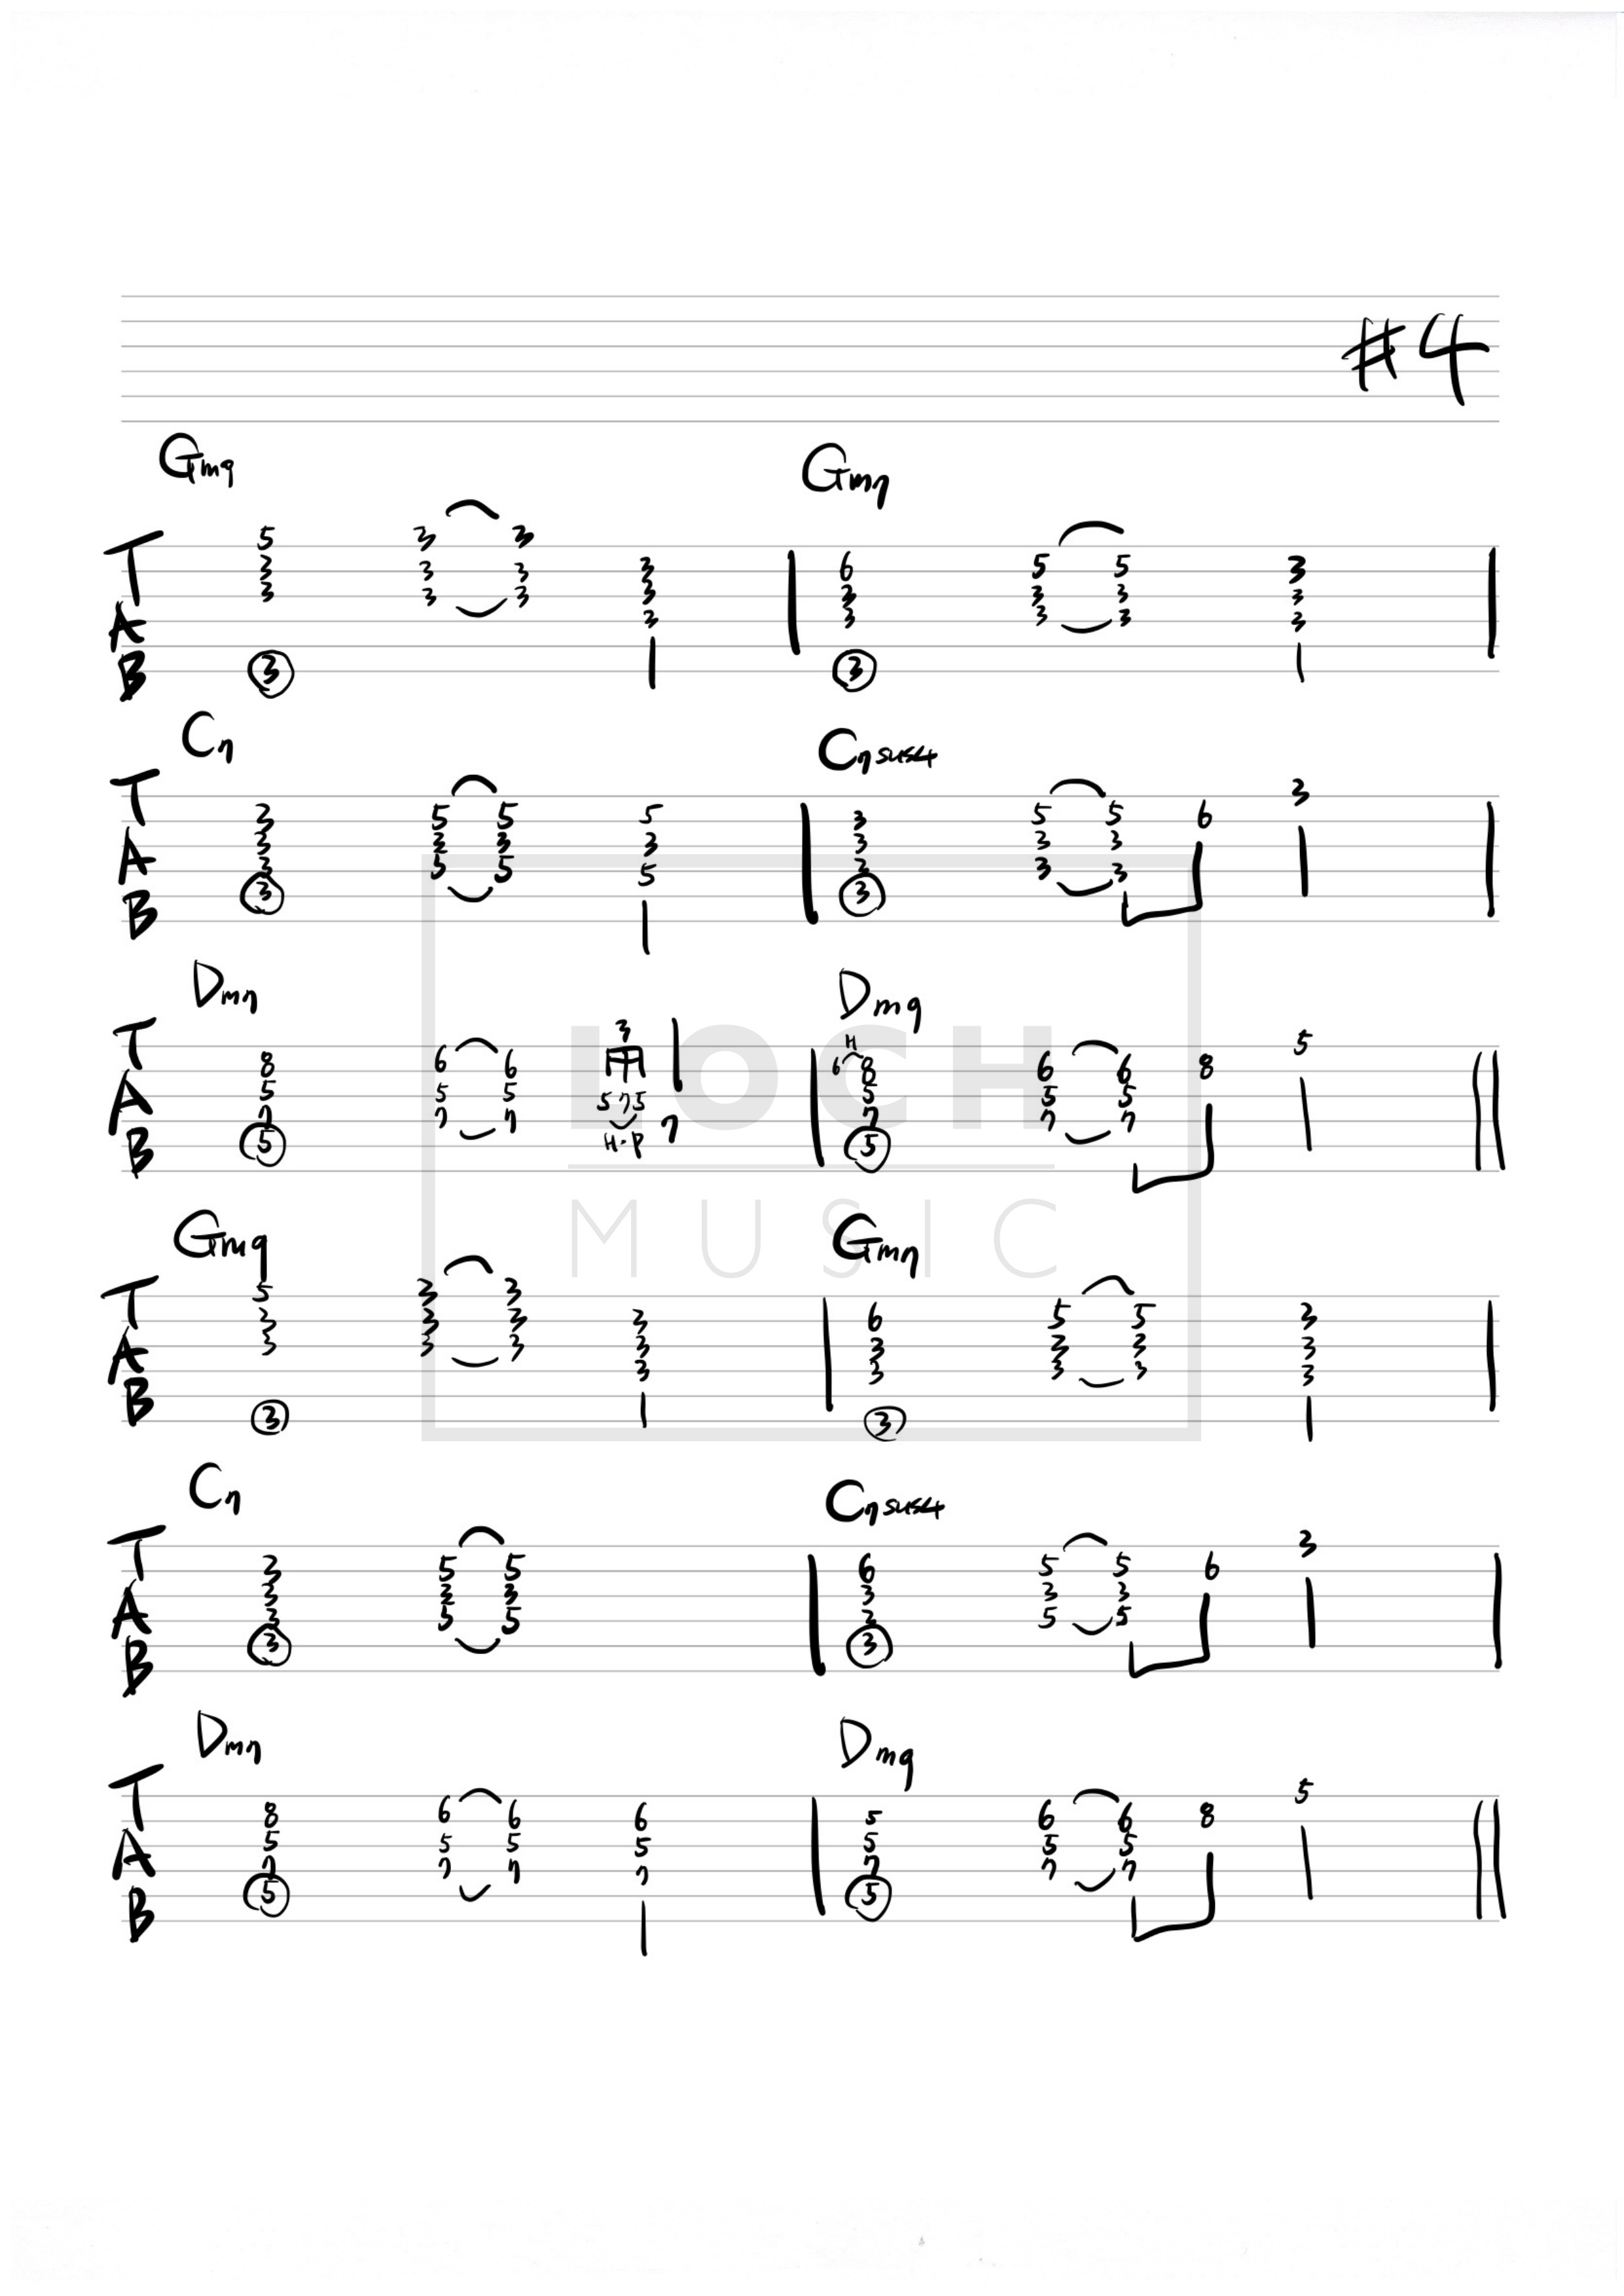 #4
Gm9 Gm7
T 5 3 3 6 5 5 3
3 3 3 3 3 3 3 3
A 3 3 3 3 3 3 3 3
3 3 3 3 3
B 3 3
C7 C7sus4
T 3
3 5 5 5 3 5 5 6
A 3 3 3 3 3 3 3
3 5 5 5 3 3 3
B 3 3
Dm7 Dm9
T 3 H 5
8 6 6 6 8 6 6 8
A 5 5 5 5 7 5 5 5 5
7 7 7 H.P 7 7 7 7
B 5 5
LOCH
MUSIC
Gm9 Gm7
T 5 3 3
3 3 3 3 6 5 5 3
A 3 3 3 3 3 3 3 3
3 3 3 3 3
B 3 3
C7 C7sus4
T 3
3 5 5 6 5 5 6
A 3 3 3 3 3 3
3 5 5 3 5 5
B 3 3
Dm7 Dm9
T 5
8 6 6 6 5 6 6 8
A 5 5 5 5 5 5 5
7 7 7 7 7 7 7
B 5 5